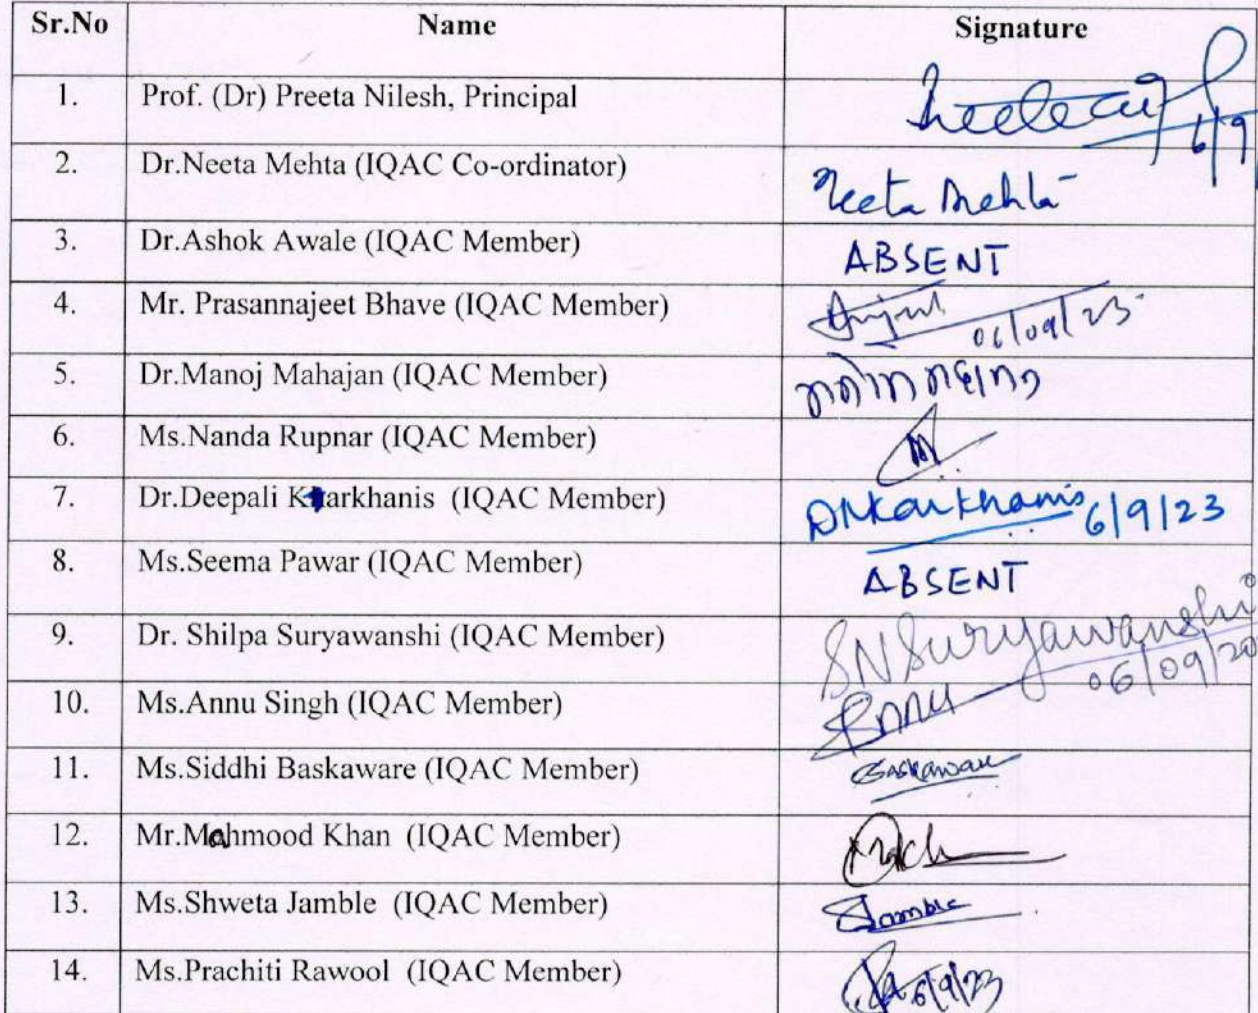 Sr.No Name Signature
1. Prof. (Dr) Preeta Nilesh, Principal 6/9
2. Dr.Neeta Mehta (IQAC Co-ordinator) Neeta Mehta
3. Dr.Ashok Awale (IQAC Member) ABSENT
4. Mr. Prasannajeet Bhave (IQAC Member) 06/09/23
5. Dr.Manoj Mahajan (IQAC Member)
6. Ms.Nanda Rupnar (IQAC Member)
7. Dr.Deepali Karkhanis (IQAC Member) DNKarkhanis 6/9/23
8. Ms.Seema Pawar (IQAC Member) ABSENT
9. Dr. Shilpa Suryawanshi (IQAC Member) SNSuryawanshi 06/09/20
10. Ms.Annu Singh (IQAC Member) Annu
11. Ms.Siddhi Baskaware (IQAC Member) Baskaware
12. Mr.Mahmood Khan (IQAC Member)
13. Ms.Shweta Jamble (IQAC Member) Jamble
14. Ms.Prachiti Rawool (IQAC Member) 6/9/23